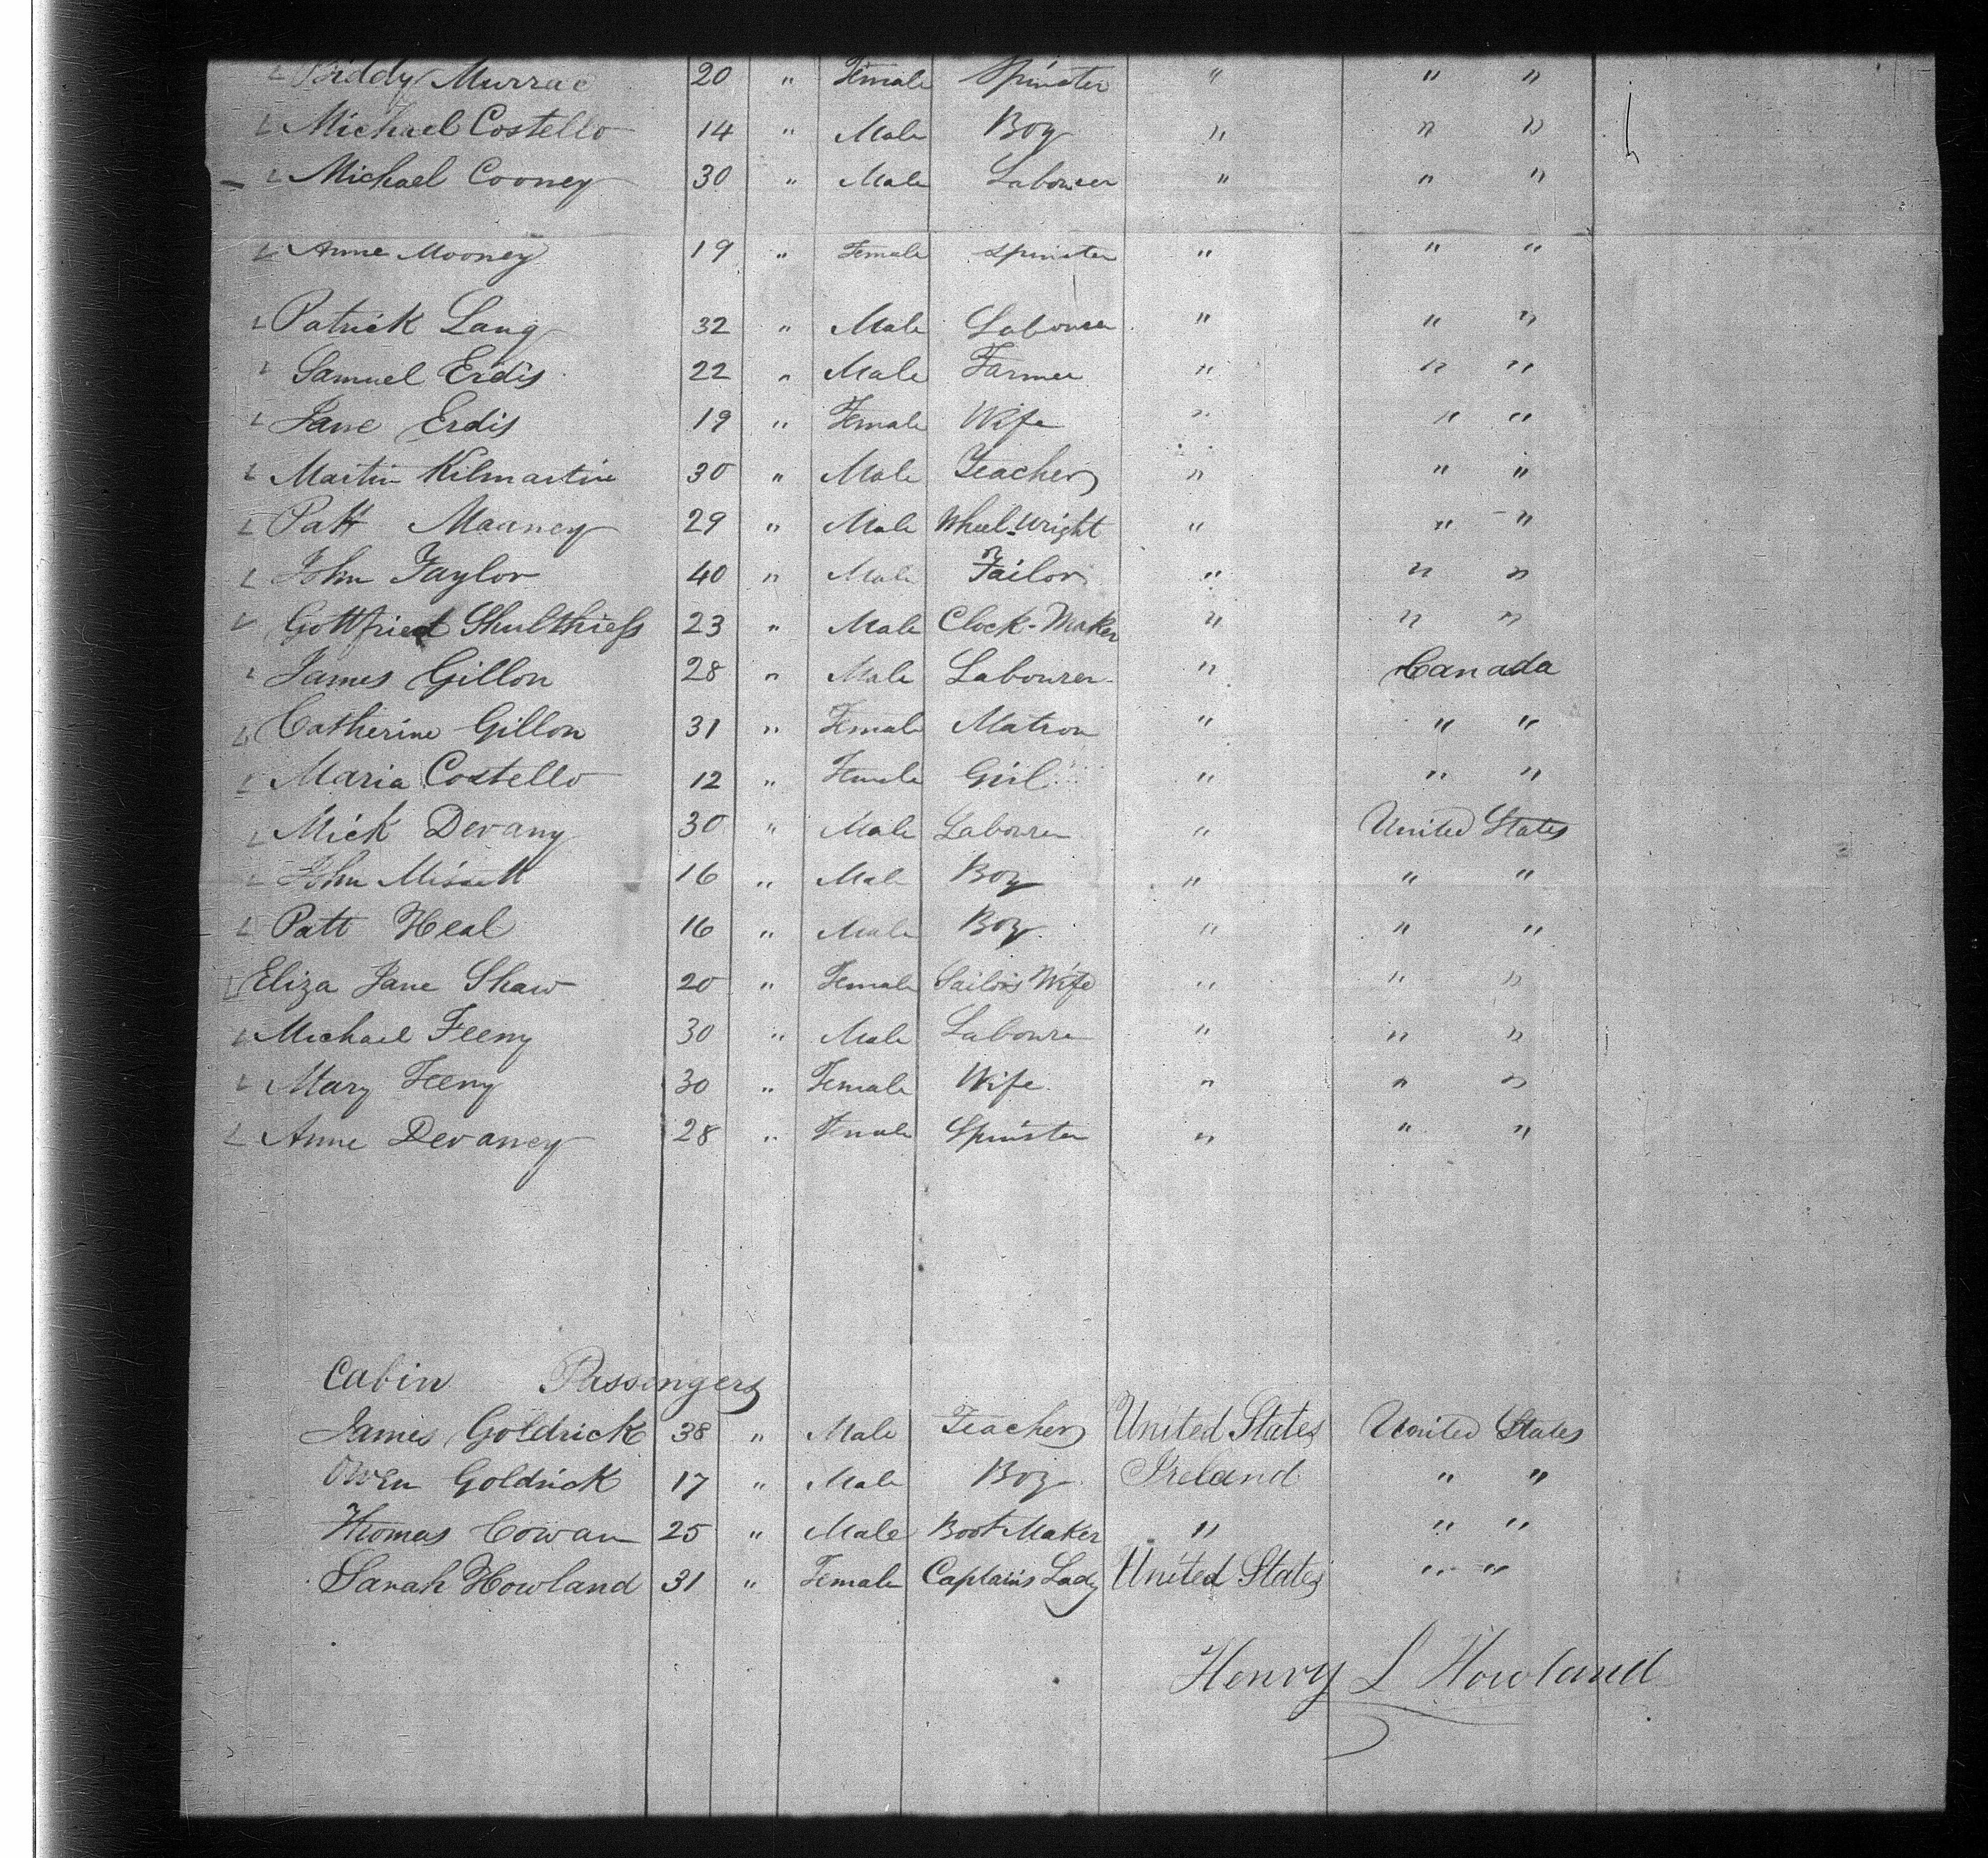 Biddy Murrae 20 " Female Spinster " " "
Michael Costello 14 " Male Boy " " "
Michael Cooney 30 " Male Labourer " " "
Anne Mooney 19 " Female Spinster " " "
Patrick Lang 32 " Male Labourer " " "
Samuel Erdis 22 " Male Farmer " " "
Jane Erdis 19 " Female Wife " " "
Martin Kilmartin 30 " Male Teacher " " "
Patt Maaney 29 " Male Wheel-Wright " " "
John Taylor 40 " Male Tailor " " "
Gottfried Shulthiess 23 " Male Clock-Maker " " "
James Gillon 28 " Male Labourer " Canada
Catherine Gillon 31 " Female Matron " " "
Maria Costello 12 " Female Girl " " "
Mick Devany 30 " Male Labourer " United States
John 16 " Male Boy " " "
Patt Heal 16 " Male Boy " " "
Eliza Jane Shaw 20 " Female Sailor's Wife " " "
Michael Feeny 30 " Male Labourer " " "
Mary Feeny 30 " Female Wife " " "
Anne Devaney 28 " Female Spinster " " "
Cabin Passengers
James Goldrick 38 " Male Teacher United States United States
Owen Goldrick 17 " Male Boy Ireland " "
Thomas Cowan 25 " Male Boot Maker " " "
Sarah Howland 31 " Female Captain's Lady United States " "
Henry L Howland